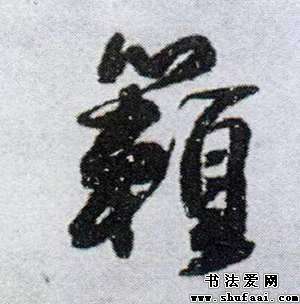 籟
书法爱网
www.shufaai.com